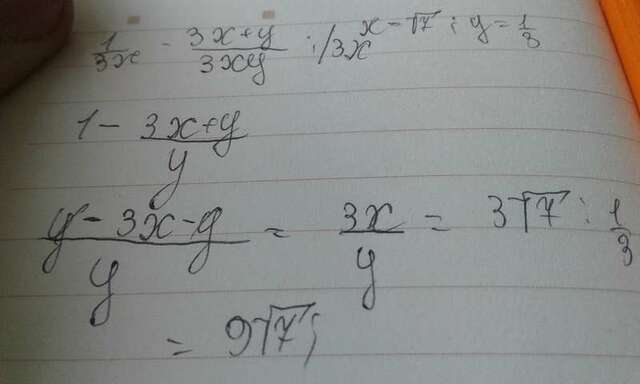 1/3x - (3x+y)/3xy ; /3x x-√7 ; y=1/3
1 - (3x+y)/y
(y-3x-y)/y = 3x/y = 3√7 : 1/3
= 9√7;